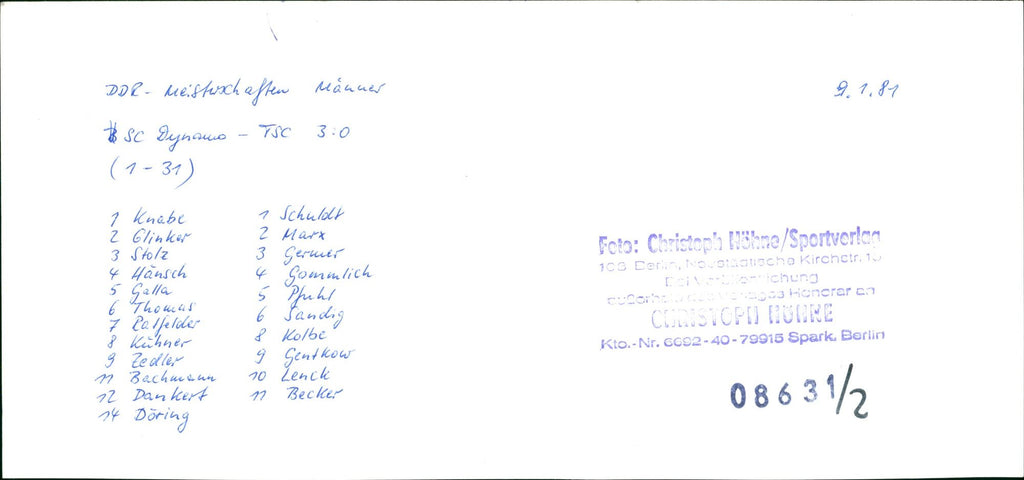 DDR - Meisterschaften Männer
9.1.81
SC Dynamo - TSC 3:0
(1-31)
1 Knabe
2 Glinker
3 Stolz
4 Hänsch
5 Galla
6 Thomas
7
8 Kühner
9 Zedler
11 Bachmann
12 Dankert
14 Döring
1 Schuldt
2 Marx
3 Germer
4 Gommlich
5 Pfuhl
6 Sandig
8 Kolbe
9 Gentkow
10 Lenck
11 Becker
Foto: Christoph Höhne/Sportverlag
Berlin, Neustädtische Kirchstr. 15
Bei Veröffentlichung
außerhalb des Verlages Honorar an
CHRISTOPH HÖHNE
Kto.-Nr. 6692-40-79915 Spark. Berlin
08631/2